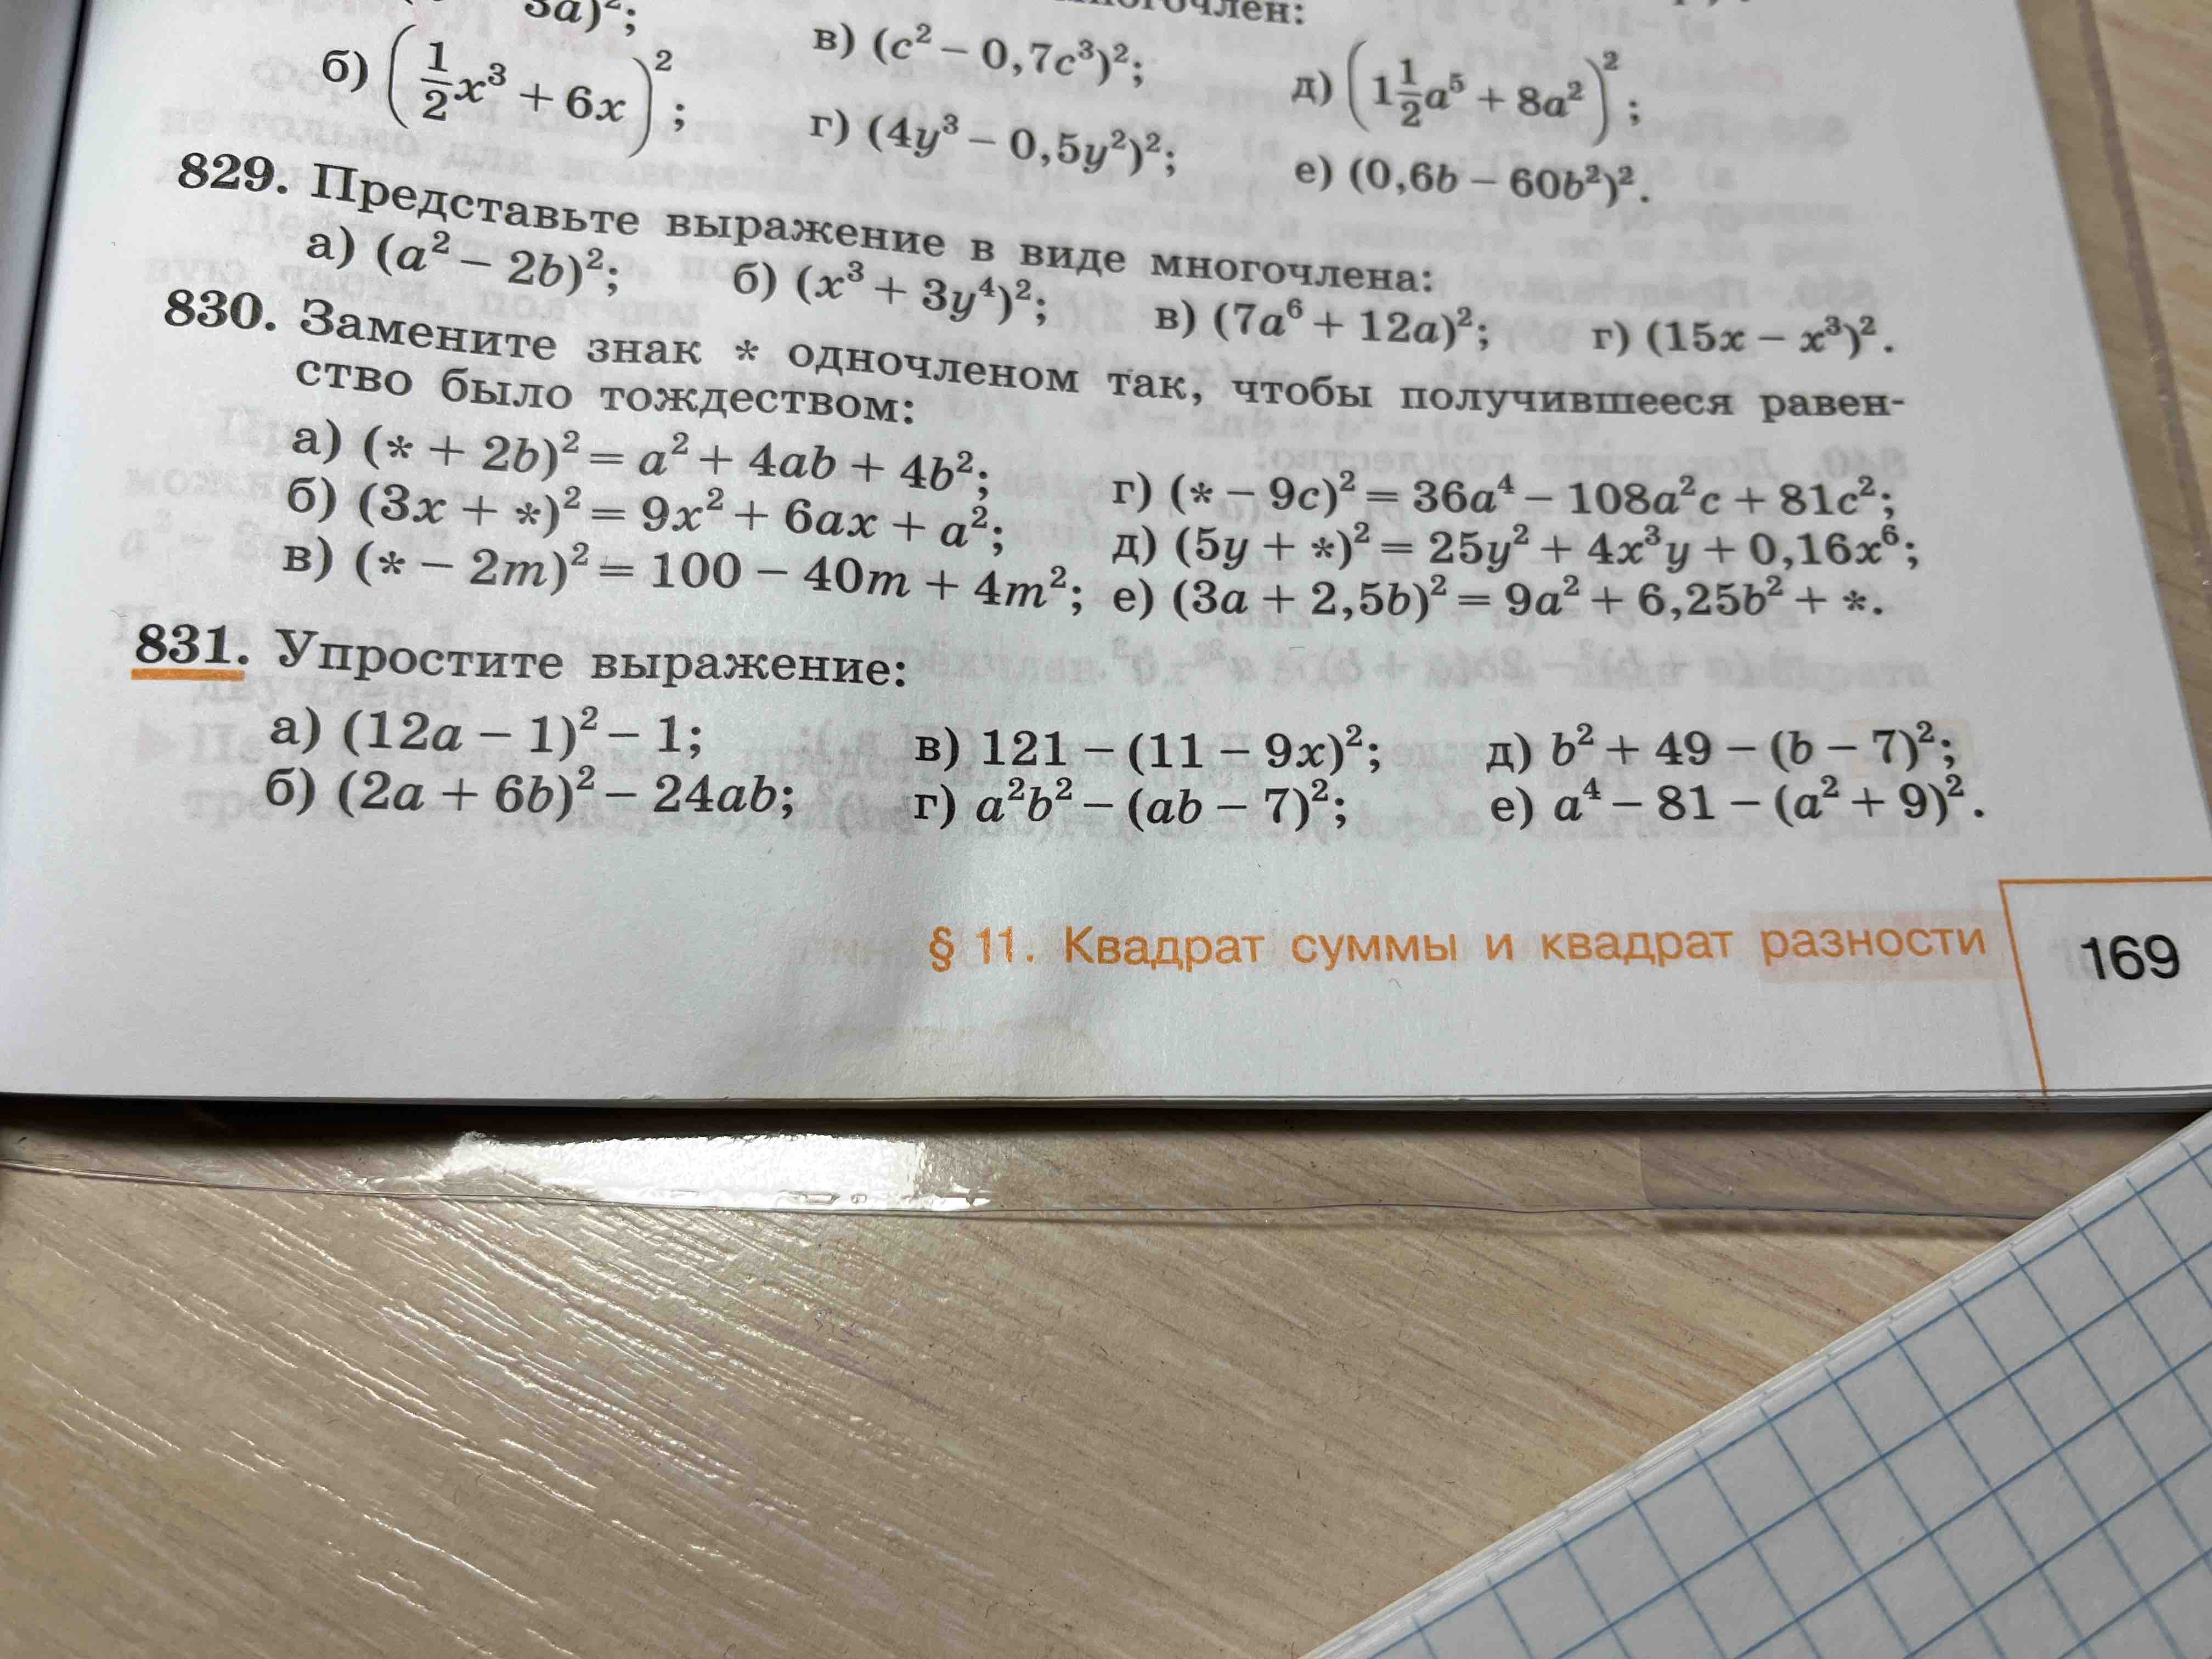 3a)²;
б) (1/2 x³ + 6x)²;
в) (c² – 0,7c³)²;
г) (4y³ – 0,5y²)²;
д) (1 1/2 a⁵ + 8a²)²;
е) (0,6b – 60b²)².
829. Представьте выражение в виде многочлена:
а) (a² – 2b)²; б) (x³ + 3y⁴)²; в) (7a⁶ + 12a)²; г) (15x – x³)².
830. Замените знак * одночленом так, чтобы получившееся равен-
ство было тождеством:
а) (* + 2b)² = a² + 4ab + 4b²;
б) (3x + *)² = 9x² + 6ax + a²;
в) (* – 2m)² = 100 – 40m + 4m²;
г) (* – 9c)² = 36a⁴ – 108a²c + 81c²;
д) (5y + *)² = 25y² + 4x³y + 0,16x⁶;
е) (3a + 2,5b)² = 9a² + 6,25b² + *.
831. Упростите выражение:
а) (12a – 1)² – 1;
б) (2a + 6b)² – 24ab;
в) 121 – (11 – 9x)²;
г) a²b² – (ab – 7)²;
д) b² + 49 – (b – 7)²;
е) a⁴ – 81 – (a² + 9)².
§ 11. Квадрат суммы и квадрат разности
169